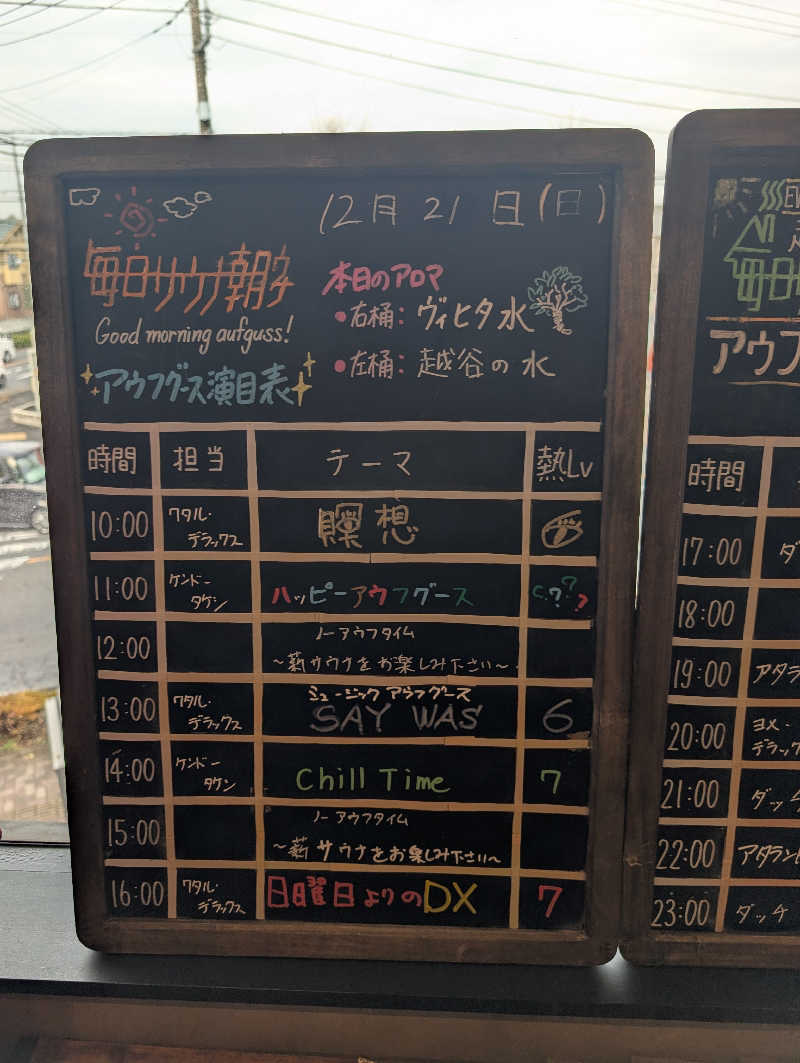 12月21日(日)
毎日サウナ朝子
Good morning aufguss!
アウフグース演目表
本日のアロマ
・右桶: ヴィヒタ水
・左桶: 越谷の水
時間 担当 テーマ 熱Lv
10:00 ワタル・デラックス 瞑想
11:00 ケンドータケシ ハッピーアウフグース ???
12:00 ノーアウフタイム
〜薪サウナをお楽しみ下さい〜
13:00 ワタル・デラックス ミュージックアウフグース
SAY WAS 6
14:00 ケンドータケシ Chill Time 7
15:00 ノーアウフタイム
〜薪サウナをお楽しみ下さい〜
16:00 ワタル・デラックス 日曜日よりのDX 7
毎日
アウフ
時間
17:00 ダ
18:00
19:00 アタラ
20:00 ヨメ・デラック
21:00 ダッ
22:00 アタラン
23:00 ダッチ